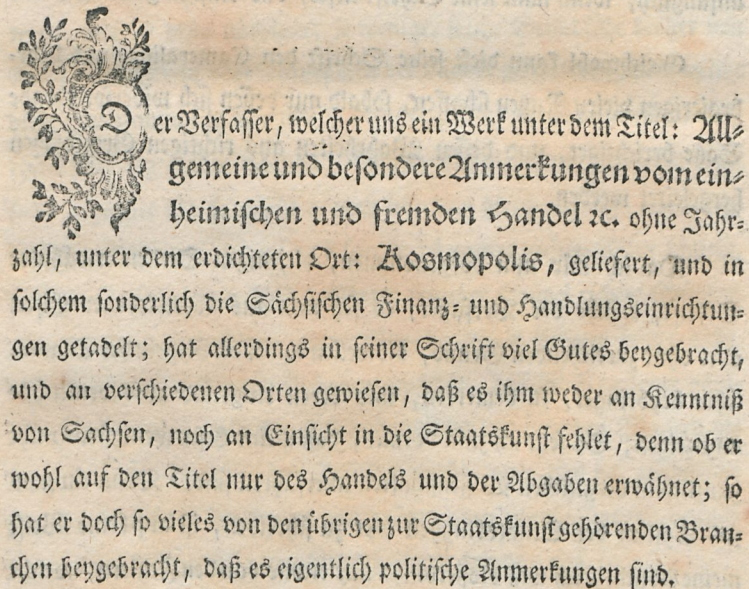 Der Verfasser, welcher uns ein Werk unter dem Titel: All-
gemeine und besondere Anmerkungen vom ein-
heimischen und fremden Handel ꝛc. ohne Jahr-
zahl, unter dem erdichteten Ort: Kosmopolis, geliefert, und in
solchem sonderlich die Sächsischen Finanz- und Handlungseinrichtun-
gen getadelt; hat allerdings in seiner Schrift viel Gutes beygebracht,
und an verschiedenen Orten gewiesen, daß es ihm weder an Kenntniß
von Sachsen, noch an Einsicht in die Staatskunst fehlet, denn ob er
wohl auf den Titel nur des Handels und der Abgaben erwähnet; so
hat er doch so vieles von den übrigen zur Staatskunst gehörenden Bran-
chen beygebracht, daß es eigentlich politische Anmerkungen sind.